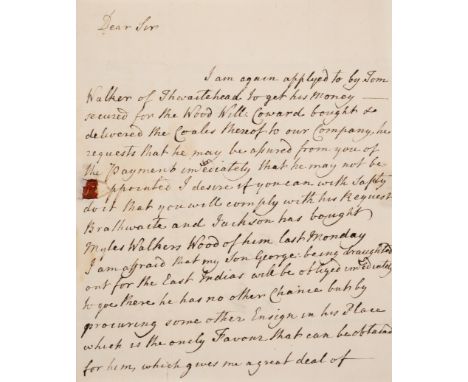 Dear Sir
I am again applyed to by Tom
Walker of Thwaitehead to get his Money
secured for the Wood Will: Coward bought &
delivered the Coales thereof to our Company, he
requests that he may be assured from you of
the Payment imediately that he may not be
appointed I desire if you can with Safty
do it that you will comply with his Request
Brathwaite and Jackson has bought
Myles Walkers Wood of him last Monday
I am affraid that my Son George being draughted
out for the East Indias will be obliged imediately
to goe there he has no other Chance but by
procuring some other Ensign in his Place
which is the only Favour that can be obtained
for him, which gives me a great deal of